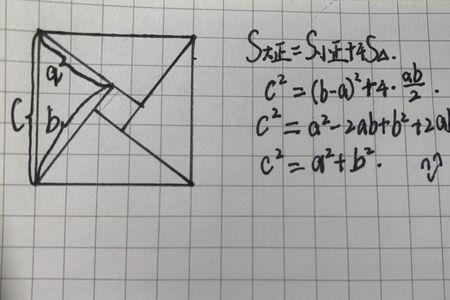 a
b
C
S大正=S小正+4S△.
c²=(b-a)²+4·ab/2.
c²=a²-2ab+b²+2ab
c²=a²+b².